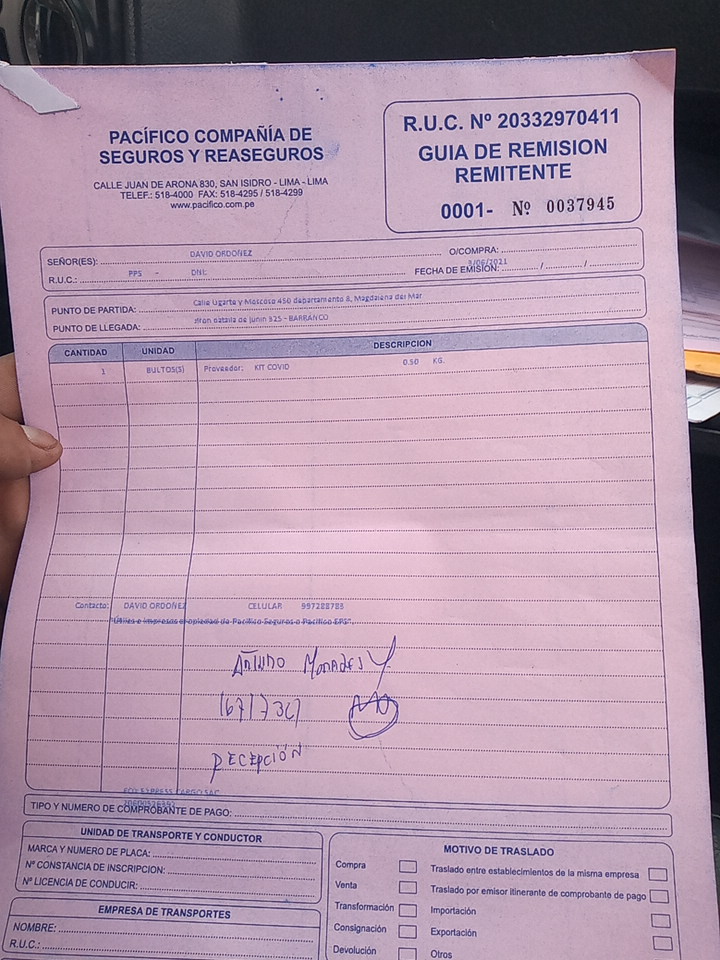 PACÍFICO COMPAÑÍA DE
SEGUROS Y REASEGUROS
CALLE JUAN DE ARONA 830, SAN ISIDRO - LIMA - LIMA
TELEF.: 518-4000 FAX: 518-4295 / 518-4299
www.pacifico.com.pe
R.U.C. Nº 20332970411
GUIA DE REMISION
REMITENTE
0001- Nº 0037945
SEÑOR(ES): DAVID ORDOÑEZ O/COMPRA:
R.U.C.: PPS - DNI: FECHA DE EMISIÓN: /06/2021
PUNTO DE PARTIDA: Calle Ugarte y Moscoso 450 departamento 8, Magdalena del Mar
PUNTO DE LLEGADA: Jiron batalla de junin 325 - BARRANCO
CANTIDAD UNIDAD DESCRIPCION
1 BULTOS(S) Proveedor: KIT COVID 0.50 KG.
Contacto: DAVID ORDOÑEZ CELULAR 997288783
"Útiles e impresos propiedad de Pacifico Seguros o Pacifico EPS".
Morales
RECEPCIÓN
EXPRESS CARGO SAC
TIPO Y NUMERO DE COMPROBANTE DE PAGO:
UNIDAD DE TRANSPORTE Y CONDUCTOR
MARCA Y NUMERO DE PLACA:
Nº CONSTANCIA DE INSCRIPCION:
Nº LICENCIA DE CONDUCIR:
EMPRESA DE TRANSPORTES
NOMBRE:
R.U.C.:
MOTIVO DE TRASLADO
Compra
Venta
Transformación
Consignación
Devolución
Traslado entre establecimientos de la misma empresa
Traslado por emisor itinerante de comprobante de pago
Importación
Exportación
Otros